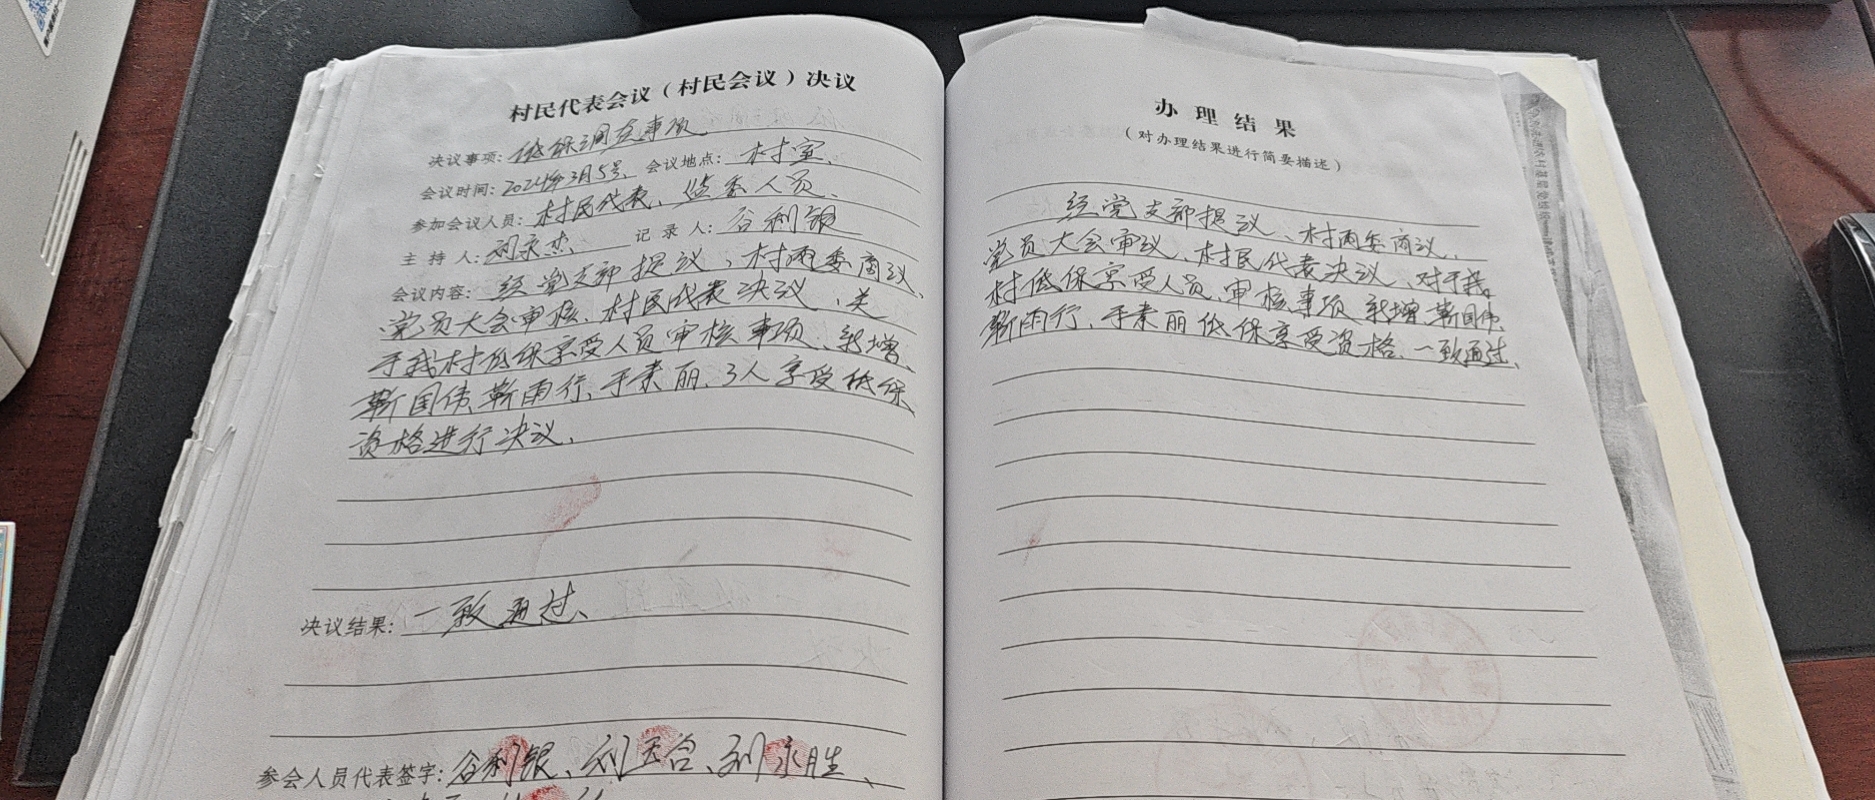 村民代表会议（村民会议）决议
决议事项：低保调查事项
会议时间：2024年3月5号、会议地点：村室
参加会议人员：村民代表、监委人员、
主持人：刘永杰 记录人：谷利银
会议内容：经党支部提议、村两委商议、
党员大会审核、村民代表决议、关
于我村低保享受人员审核事项、新增、
靳国伟、靳雨行、于素丽、3人享受低保
资格进行决议、
决议结果：一致通过、
参会人员代表签字：谷利银、刘玉合、刘永胜、
办理结果
（对办理结果进行简要描述）
经党支部提议、村两委商议、
党员大会审议、村民代表决议、对于我
村低保享受人员、审核事项、新增、靳国伟、
靳雨行、于素丽低保享受资格、一致通过、